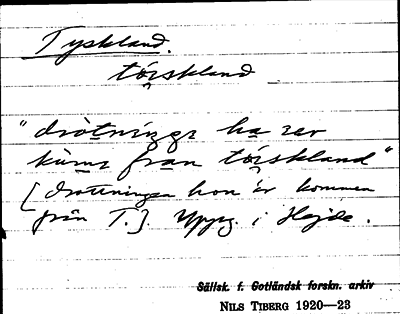 Tyskland.
törskland
"drotninggi ha er
kumi fran törskland"
[Drottningen hon är kommen
från T.]. Uppg. i Hejde.
Sällsk. f. Gotländsk forskn. arkiv
NILS TIBERG 1920—23